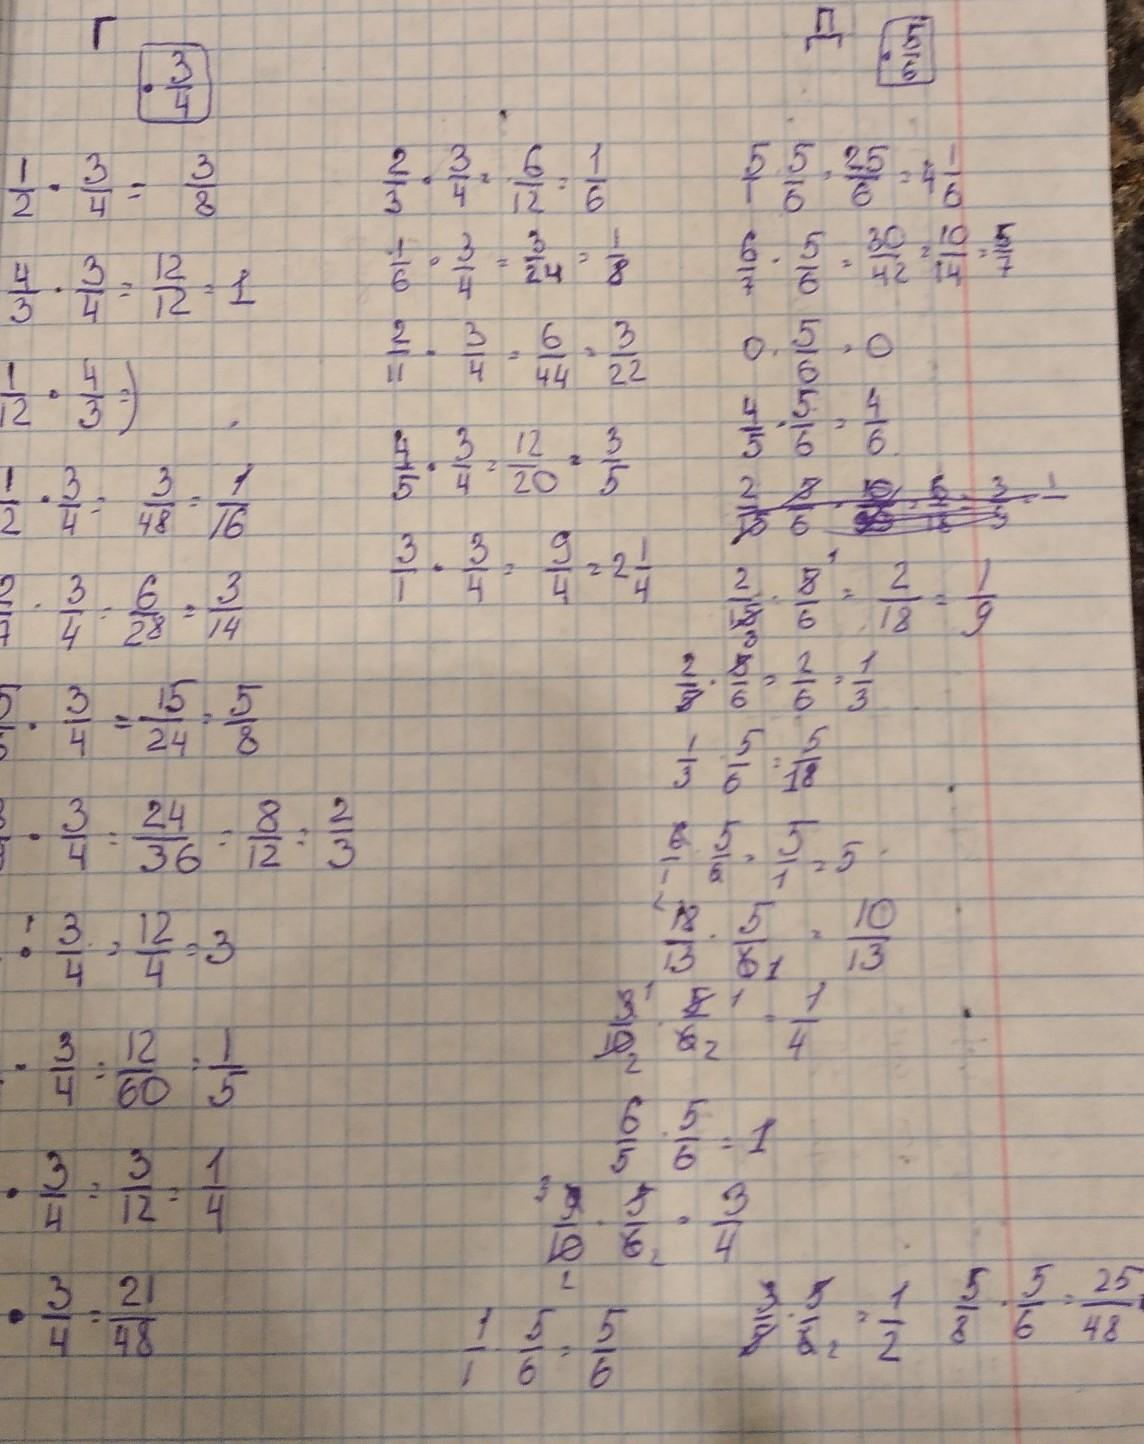 Г
· 3/4
1/2 · 3/4 = 3/8
4/3 · 3/4 = 12/12 = 1
1/12 · 4/3 = )
1/2 · 3/4 = 3/48 = 1/16
· 3/4 = 6/28 = 3/14
· 3/4 = 15/24 = 5/8
· 3/4 = 24/36 = 8/12 = 2/3
· 3/4 = 12/4 = 3
· 3/4 = 12/60 = 1/5
· 3/4 = 3/12 = 1/4
· 3/4 = 21/48
2/3 · 3/4 = 6/12 = 1/6
1/6 · 3/4 = 3/24 = 1/8
2/11 · 3/4 = 6/44 = 3/22
4/5 · 3/4 = 12/20 = 3/5
3/1 · 3/4 = 9/4 = 2 1/4
Д
· 5/6
5/1 · 5/6 = 25/6 = 4 1/6
6/7 · 5/6 = 30/42 = 10/14 = 5/7
0 · 5/6 = 0
4/5 · 5/6 = 4/6
2/15 · 5/6 = 2/18 = 1/9
2/5 · 5/6 = 2/6 = 1/3
1/3 · 5/6 = 5/18
6/1 · 5/6 = 5/1 = 5
18/13 · 5/6 = 10/13
3/10 · 5/6 = 1/4
6/5 · 5/6 = 1
9/10 · 5/6 = 3/4
1/1 · 5/6 = 5/6
3/5 · 5/6 = 1/2
5/8 · 5/6 = 25/48